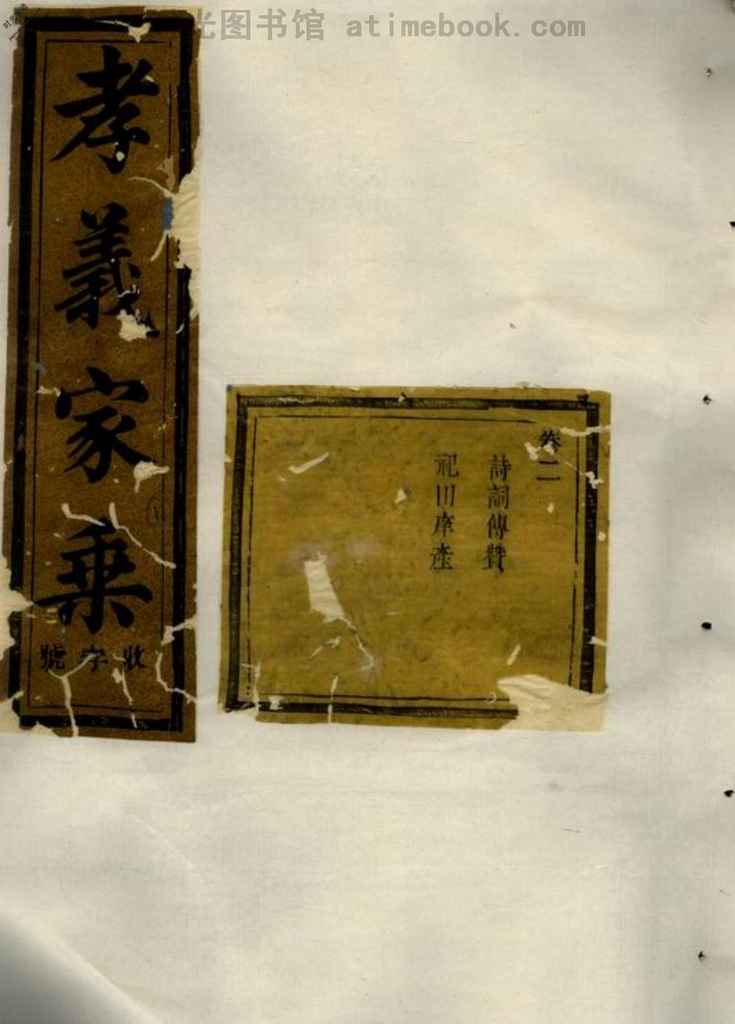 光图书馆 atimebook.com
孝義家乘
收字號
卷二
詩詞傳贊
祀田産